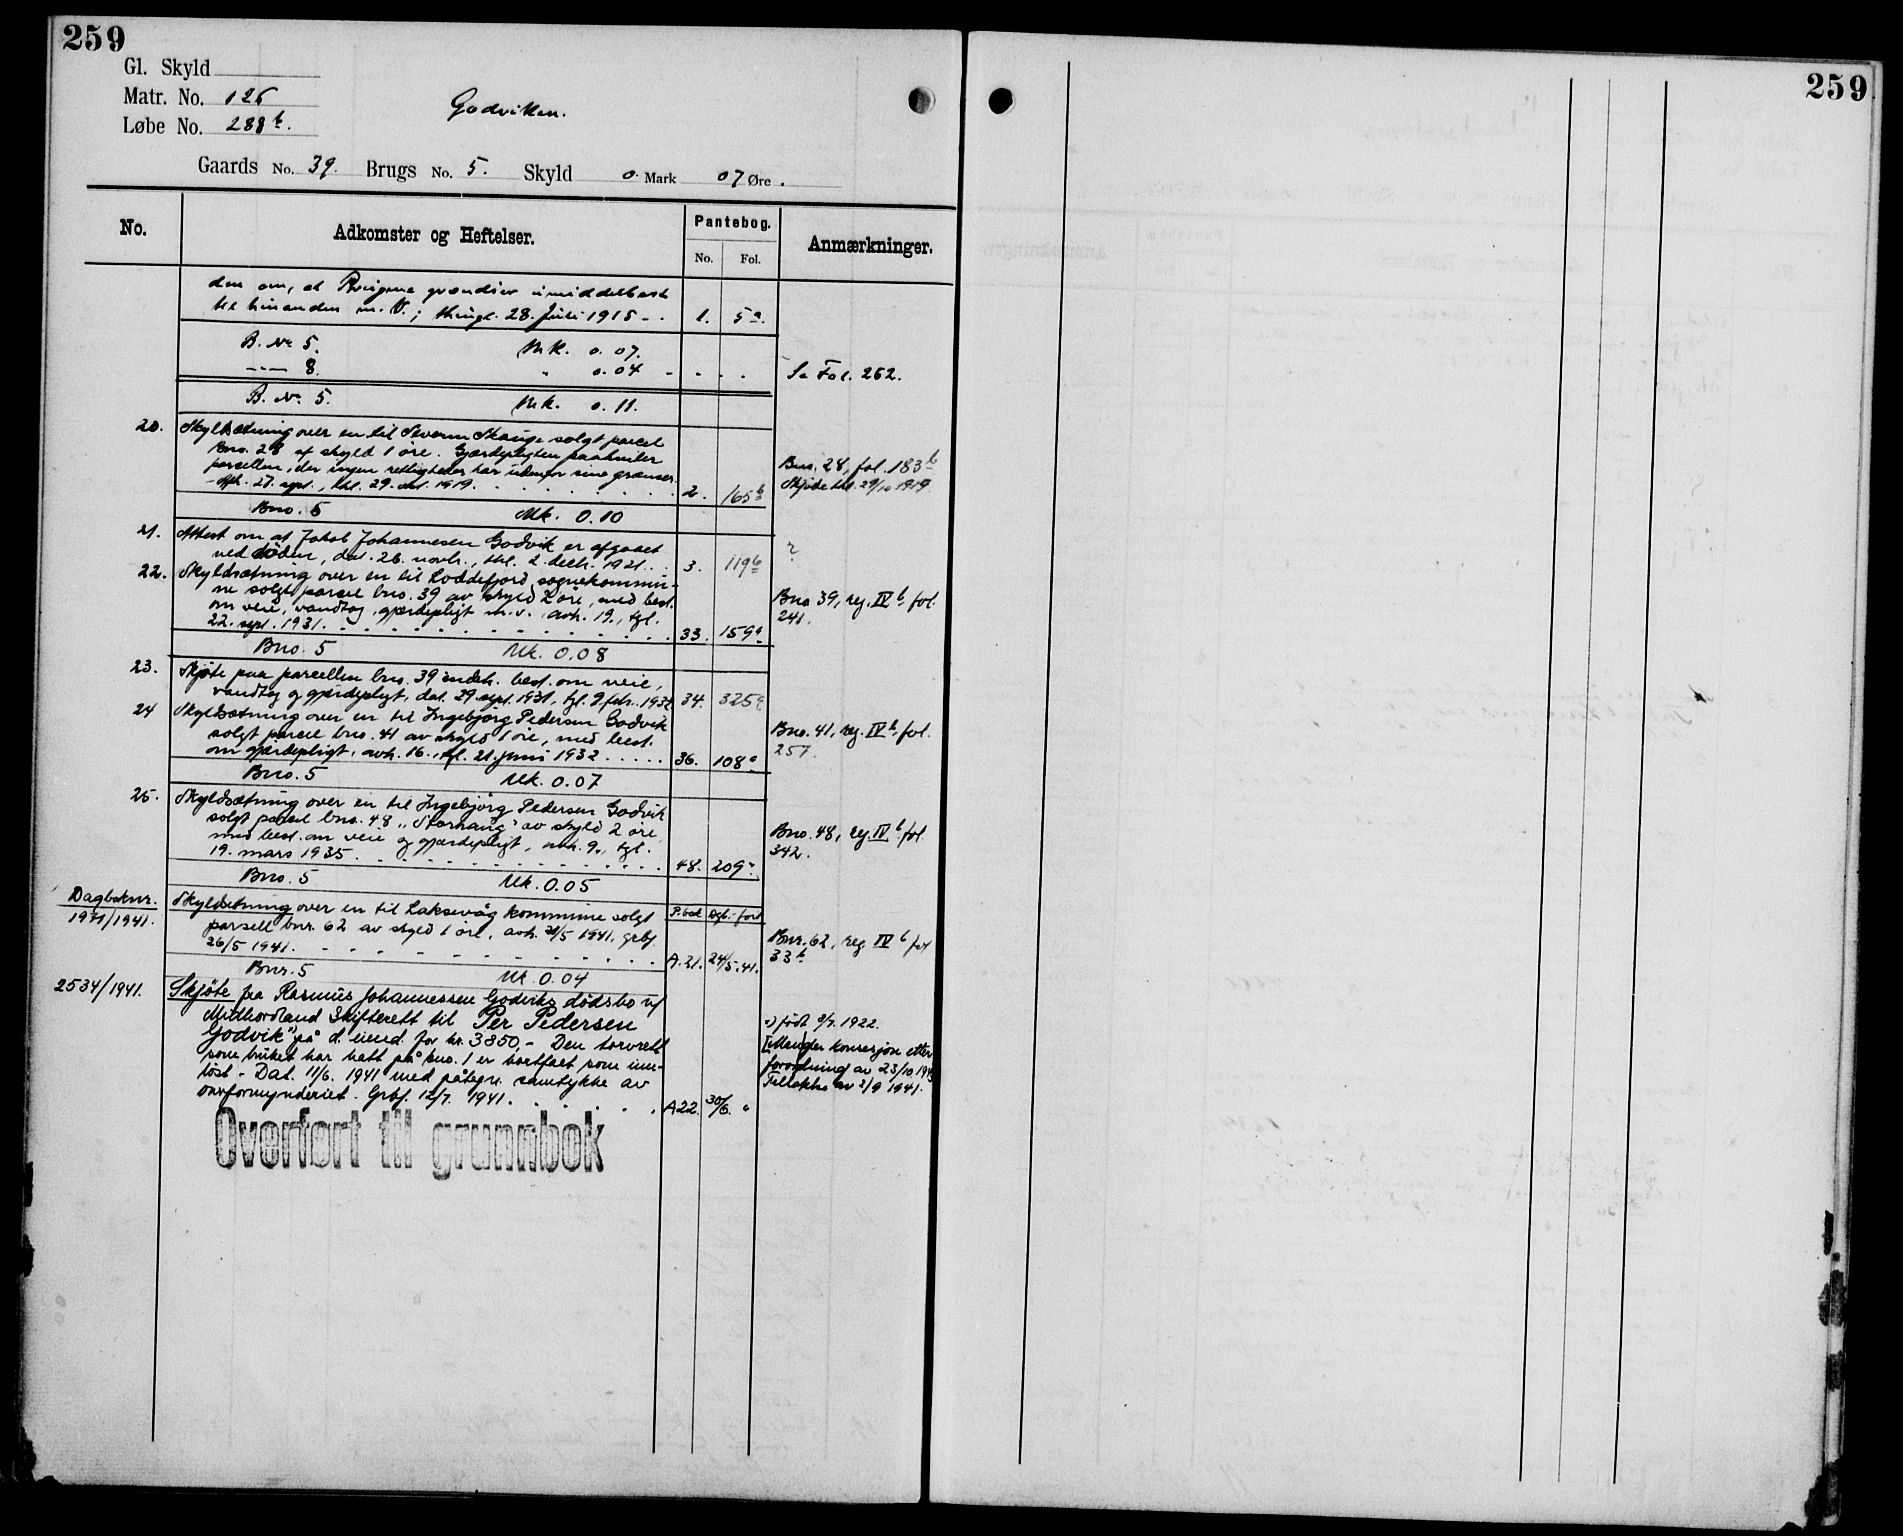 259
259
Gl. Skyld
Matr. No. 126
Løbe No. 288 b.
Godviken.
Gaards No. 39. Brugs No. 5. Skyld 0. Mark 07 Øre.
No. Adkomster og Heftelser. Pantebog. Anmærkninger.
No. Fol.
den om, at grændser umiddelbart
til hinanden m. V.; thingl. 28. Juli 1915 - . 1. 5 a.
B. No 5. Mk. 0.07.
-"- 8. " 0.04 - - - - Se Fol. 262.
B. No. 5. Mk. 0.11.
20. Skyldsætning over en til Severin Skauge solgt parcel
Bno. 28 af skyld 1 øre. Gjærdepligten paahviler
parcellen, der ingen rettigheder har udenfor sine grænser
- Afh. 27. sept., thl. 29. okt. 1919. . . . . . 2. 165 b
Bno. 28, fol. 183 b
Skjøde thl. 29/10 1919.
Bno. 5 Mk. 0.10
21. Attest om at Jakob Johannesen Godvik er afgaaet
ved döden, dat. 26. novbr., thl. 2. decbr. 1921. . . 3. 119 b
?
22. Skyldsætning over en til Loddefjord sognekommu-
ne solgt parcel bno. 39 av skyld 2 öre, med best.
om veie, vandtag, gjærdepligt m.v., avh. 19., tgl.
22. sept. 1931. - - - - - - 33. 159 a
Bno 39, reg. IV b fol.
241.
Bno. 5 Mk. 0.08
23. Skjøte paa parcellen bno. 39 indeh. best. om veie,
vandtag og gjærdepligt, dat. 29. sept. 1931, tgl. 9. febr. 1932 34. 325 a
24 Skyldsætning over en til Ingebjörg Pedersen Godvik
solgt parcel bno. 41 av skyld 1 öre, med best.
om gjærdepligt, avh. 16., tgl. 21. juni 1932 . . . . . 36. 108 a
Bno. 41, reg. IV b fol.
257.
Bno. 5 Mk. 0.07
25. Skyldsætning over en til Ingebjörg Pedersen Godvik
solgt parcel bno. 48 „Storhaug" av skyld 2 öre
med best. om veie og gjærdepligt, avh. 9., tgl.
19. mars 1935. - - - - - - 48. 209 a
Bno. 48, reg. IV b fol.
342.
Bno. 5 Mk. 0.05
Dagboknr.
1971/1941. Skyldsetning over en til Laksevåg kommune solgt P.bok Dgb. ført
parsell bnr. 62 av skyld 1 öre, avh. 21/5 1941, grbf.
26/5 1941. - - - - - - A.21. 24/5.41.
Bnr. 62, reg. IV b fol
33 b
Bnr. 5 Mk. 0.04
2534/1941. Skjöte fra Rasmus Johannessen Godviks dödsbo v/
Midthordland Skifterett til Per Pedersen
Godvik") på d. eiend. for kr. 3850,- Den torvrett
som bruket har hatt på bno. 1 er bortfalt som inn-
löst - Dat. 11/6. 1941 med påtegn. samtykke av
overformynderiet. Grbf. 12/7. 1941. . . . . A22. 30/6. "
") født 8/7. 1922.
[Mangler konsesjon etter
forordning av 23/10 1940
Tillatelse av 2/9 1941.
Overført til grunnbok